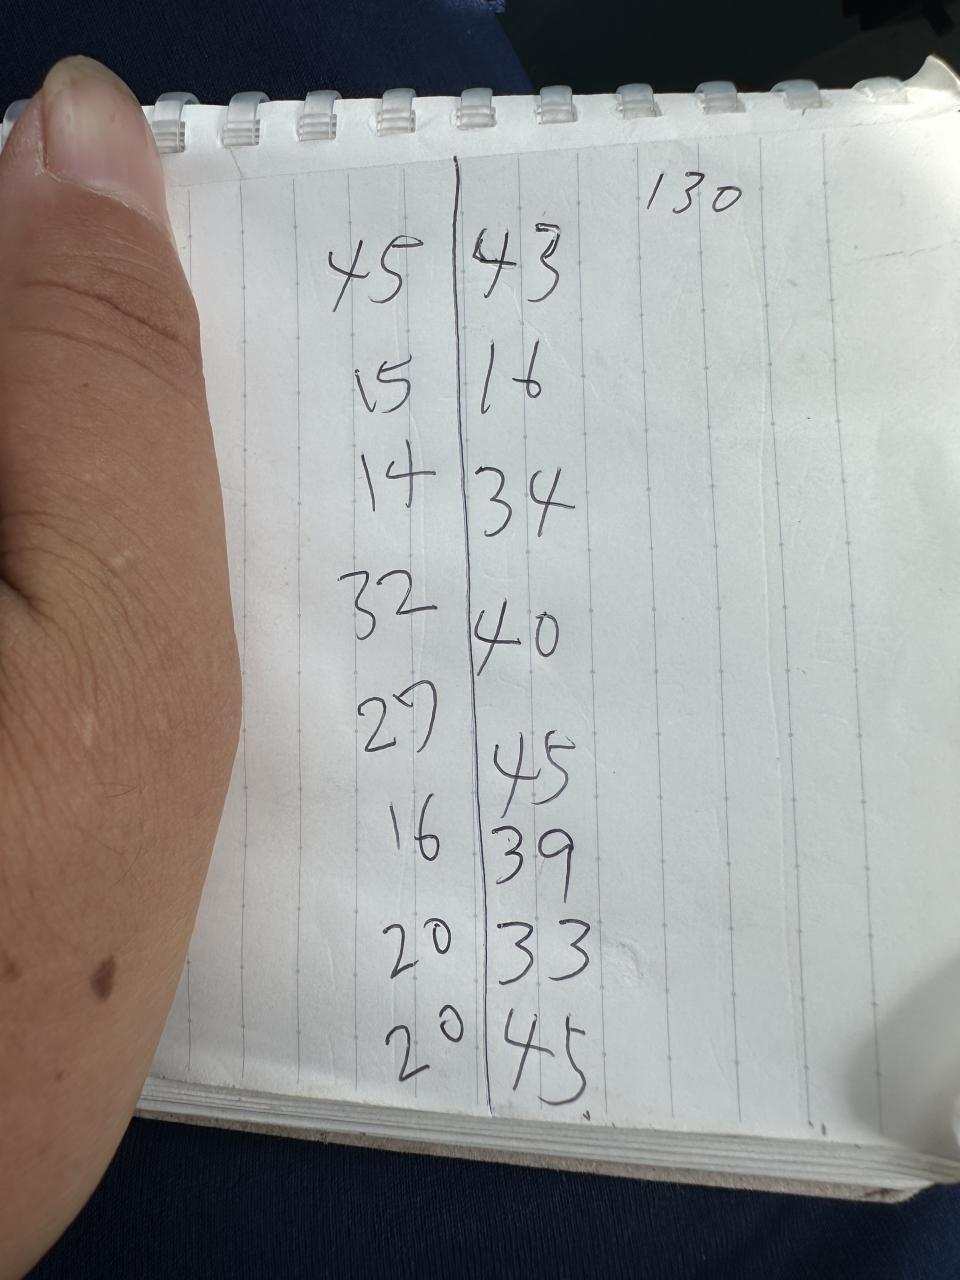 130
45 43
15 16
14 34
32 40
27 45
16 39
20 33
20 45